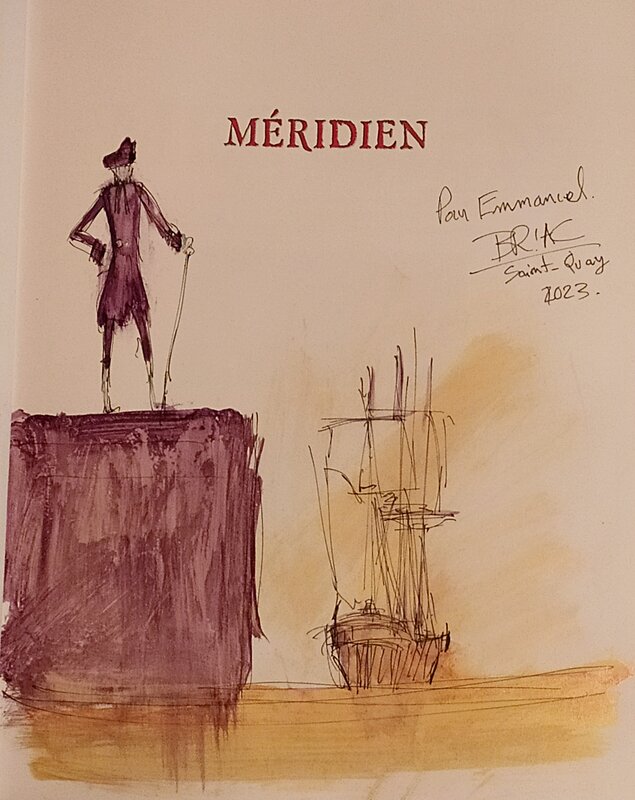 MÉRIDIEN
Pour Emmanuel.
BRIAC
Saint-Quay
2023.